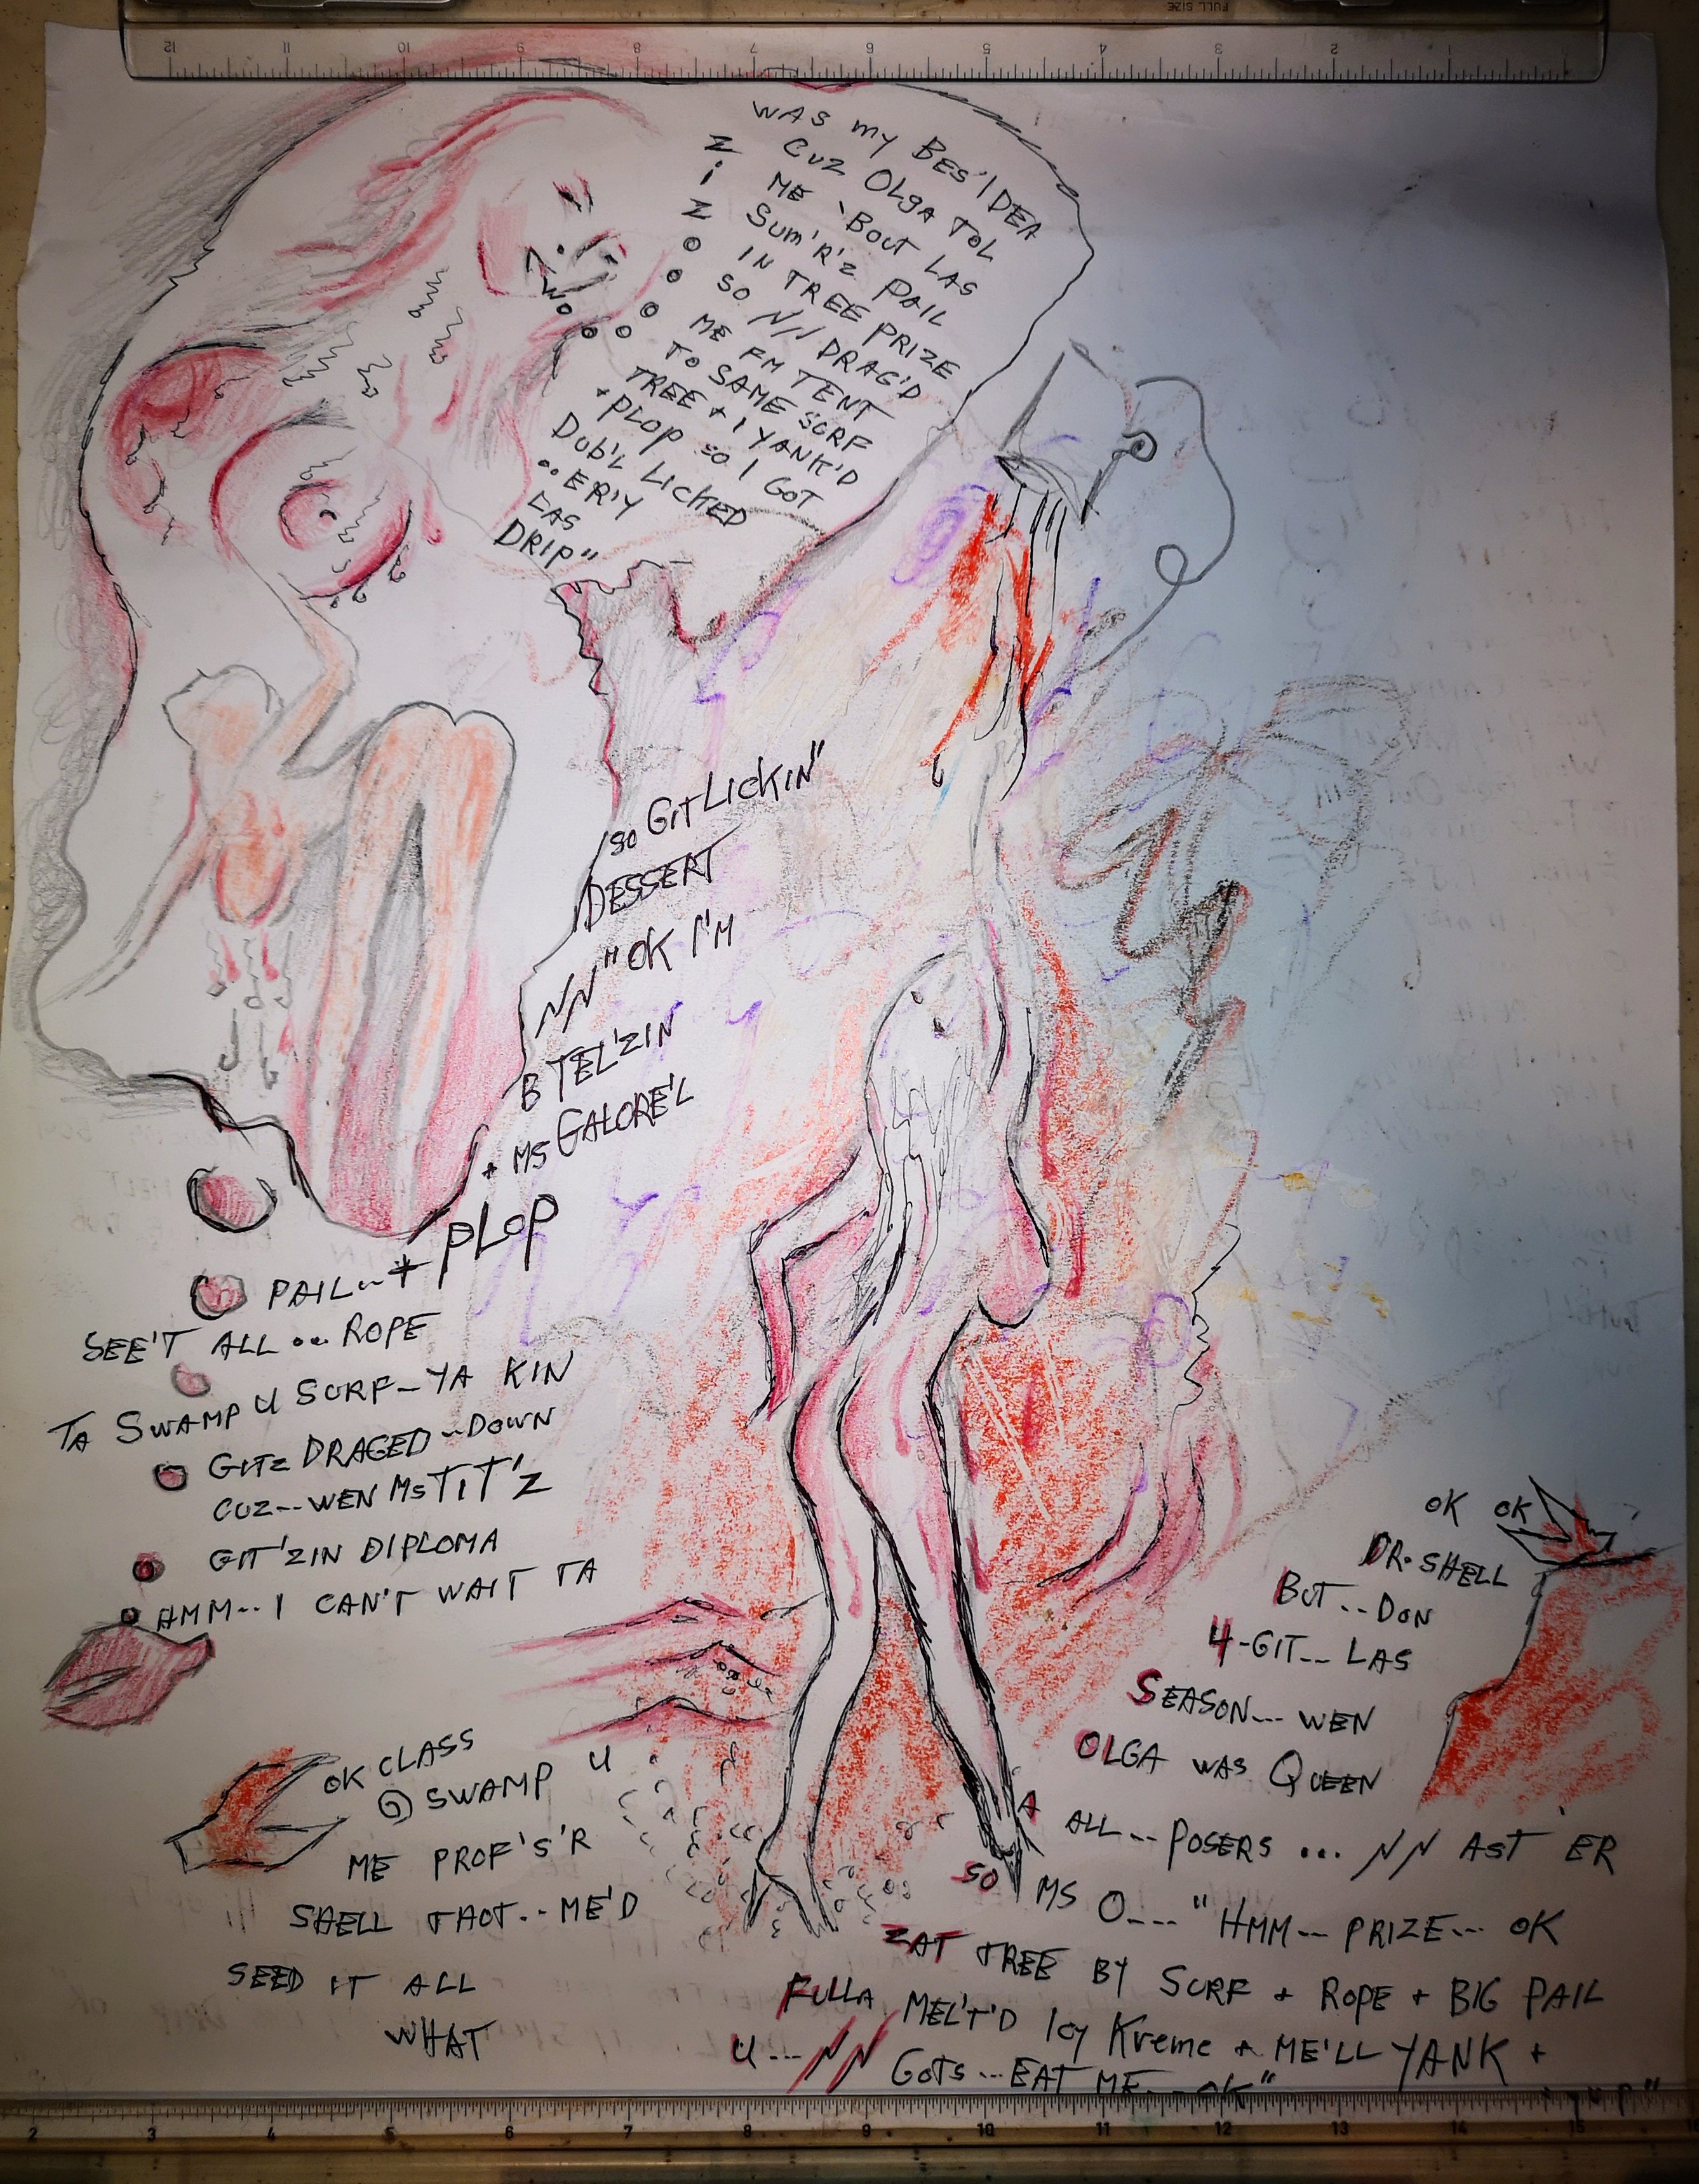 WAS my BES' IDEA
CUZ OLgA TOL
ME 'BOUT LAS
SUM'R'Z PAIL
IN TREE PRIZE
SO NN DRAG'D
ME FM TENT
TO SAME SURF
TREE + I YANK'D
+ PLOP SO I GOT
DUB'L LICKED
.. ER'Y
LAS
DRIP"
Z
i
Z
so GIT LICKIN"
DESSERT
NN "OK I'M
B TEL'ZIN
+ MS GALORE'L
PAIL.. + PLOP
SEE'T ALL ... ROPE
TA SWAMP U SURF - YA KIN
GITZ DRAGED -- DOWN
CUZ -- WEN MS TIT'Z
GIT'ZIN DIPLOMA
HMM.. I CAN'T WAIT TA
OK CLASS
@ SWAMP U
ME PROF'S'R
SHELL TAOT.. ME'D
SEED IT ALL
WHAT
OK OK
DR. SHELL
BUT .. DON
4-GIT -- LAS
SEASON --- WEN
OLGA WAS QUEEN
A ALL -- POSERS ... NN AST 'ER
SO MS O---- "HMM -- PRIZE --- OK
ZAT TREE BY SURF + ROPE + BIG PAIL
FULLA MEL'T'D Icy Kreme + ME'LL YANK +
U --- NN GOTS --- EAT ME -- OK"
+ yup"
FULL SIZE
12 11 10 9 8 7 6 5 4 3 2 1
2 3 4 5 6 7 8 9 10 11 12 13 14 15